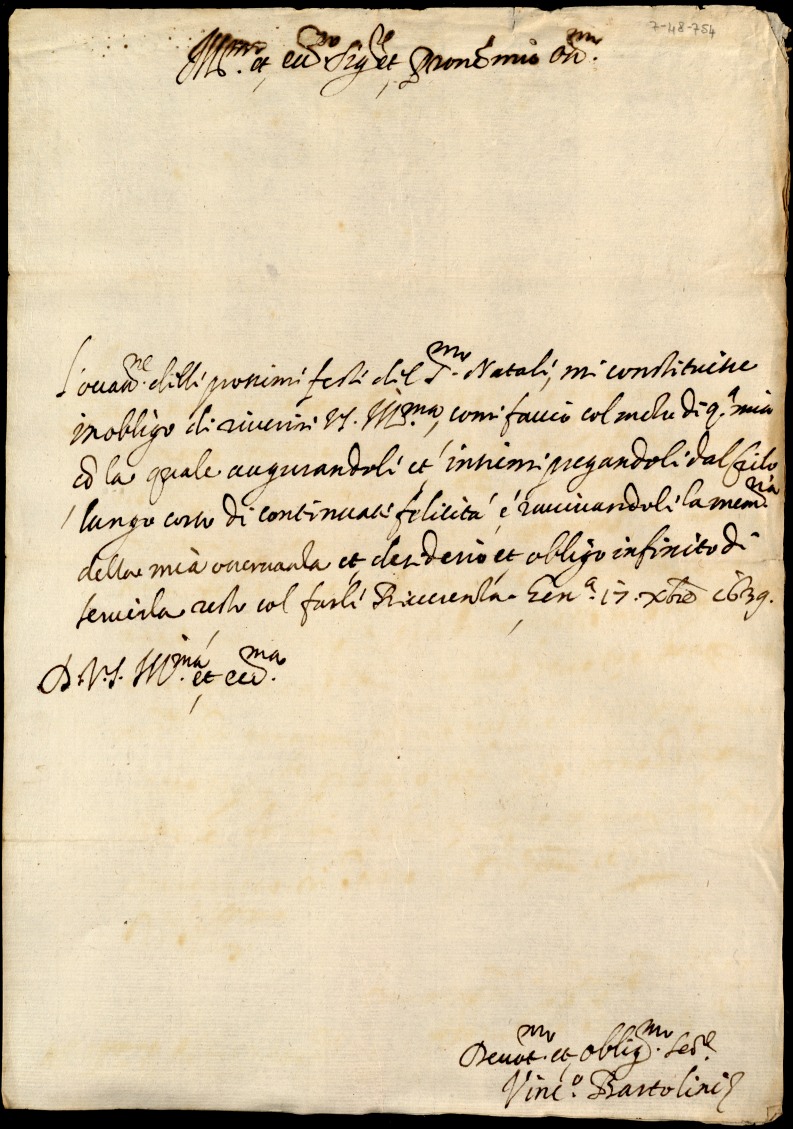 7-48-754
Ill.mo et ecc.mo Sig.re et Pron mio oss.mo
L'occas.ne delli prossimi festi del S.mo Natali, mi constituisce
in obligo di riverire V.S. Ill.ma, come faccio col melu di q.a mia
cō la quale augurandoli et insiemi pregandoli dal Cielo
lungo corso di continuate felicità é ravivandoli la mem.ria
della mia osservanza et desiderio et obligo infinito di
servirla resto col farli Riverenza. Gen.a 17. Xbre 1639.
D. V.S. Ill.ma et ecc.ma
Devot.mo et oblig.mo Ser.e
Vinc.o Bartolini